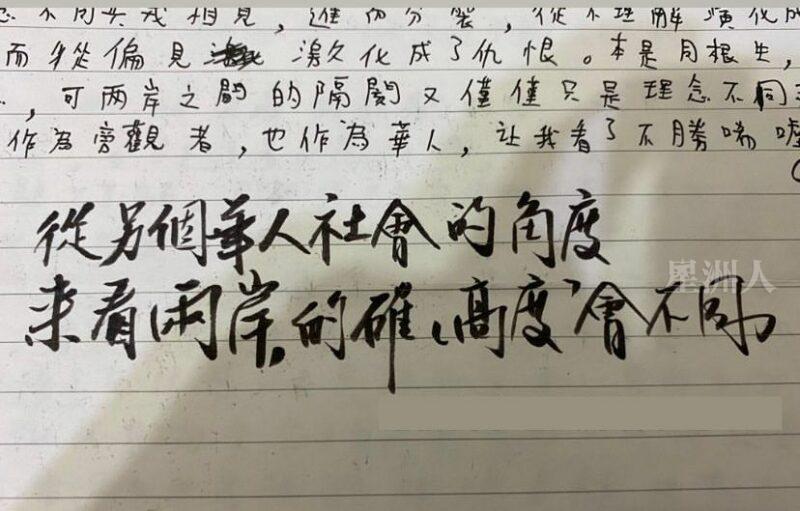 不同兵戎相見，進而分裂，從不理解演化成
而從偏見 激化成了仇恨。本是同根生，
，可两岸之間的隔閡又僅僅只是理念不同
作為旁觀者，也作為華人，让我看了不勝唏噓
從另個華人社會的角度
来看兩岸，的確，「高度」會不同
星洲人